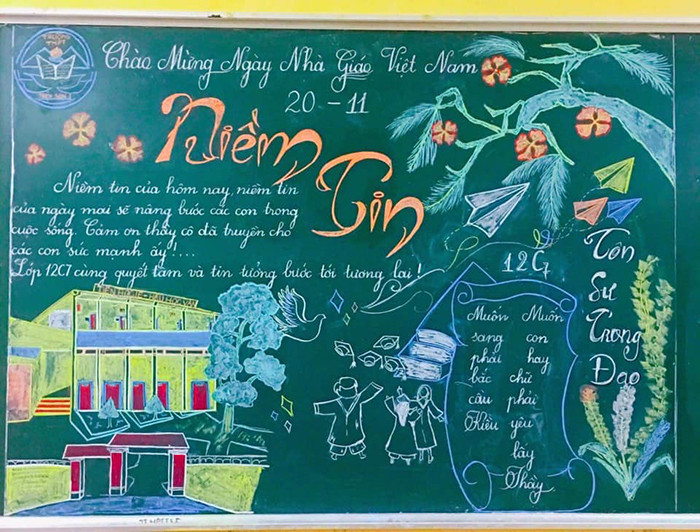 TRƯỜNG
THPT
Chào Mừng Ngày Nhà Giáo Việt Nam
20 - 11
Niềm
Tin
Niềm tin của hôm nay, niềm tin
của ngày mai sẽ nâng bước các con trong
cuộc sống. Cảm ơn thầy cô đã truyền cho
các con sức mạnh ấy!....
Lớp 12C7 cùng quyết tâm và tin tưởng bước tới tương lai!
12C7
Muốn
sang
phải
bắc
cầu
Kiều
Muốn
con
hay
chữ
phải
yêu
lấy
Thầy
Tôn
Sư
Trọng
Đạo